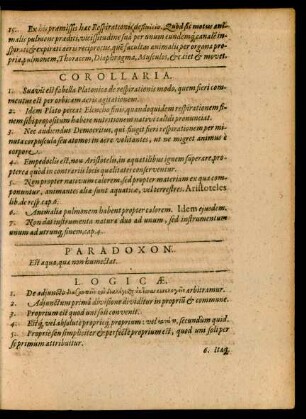 15. Ex his premissis hæc Respirationis definitio. Quòd sit motus animalis pulmone præditi, vicissitudine sed per unum eundemq́; canalē inspirati & expirati aeris reciprocus, quē facultas animalis per organa propria, pulmonem, Thoracem, Diaphragma, Musculos, &c. ciet & movet.
COROLLARIA.
1. Suavis est fabella Platonica de respirationis modo, quem fieri commentus est per obviam aeris agitationem.
2. Idem Plato peccat Elenchu finis, quando quidem respirationem finem sibi propositum habere nutritionem nativi calidi pronunciat.
3. Nec audiendus Democritus, qui fingit fieri respirationem per minuta corpuscula seu atomos in aere volitantes, ut ne migret animus è corpore.
4. Empedoclis est, non Aristotelis, in aquatilibus ignem superare, propterea quòd in contrariis locis qualitates conserventur.
5. Non propter naturam calorem, sed propter materiam ex qua componuntur, animantes aliæ sunt aquaticæ, vel terrestres. Aristoteles lib. de resp. cap. 6.
6. Animalia pulmonem habent propter calorem. Idem ejusdem.
7. Non dat instrumenta natura duo ad unum, sed instrumentum unum ad utrunq; finem, cap. 4.
PARADOXON.
Est aqua, quæ non humectat.
LOGICÆ.
1. De adjuncto arbitramur.
2. Adjunctum primâ divisione dividitur in propriū & commune.
3. Proprium est quod uni soli convenit.
4. Estq́; vel absolutè propriéq́; proprium: vel secundum quid.
5. Propriè seu simpliciter & perfectè proprium est, quod uni soli per se primùm attribuitur.
6. Itaq;